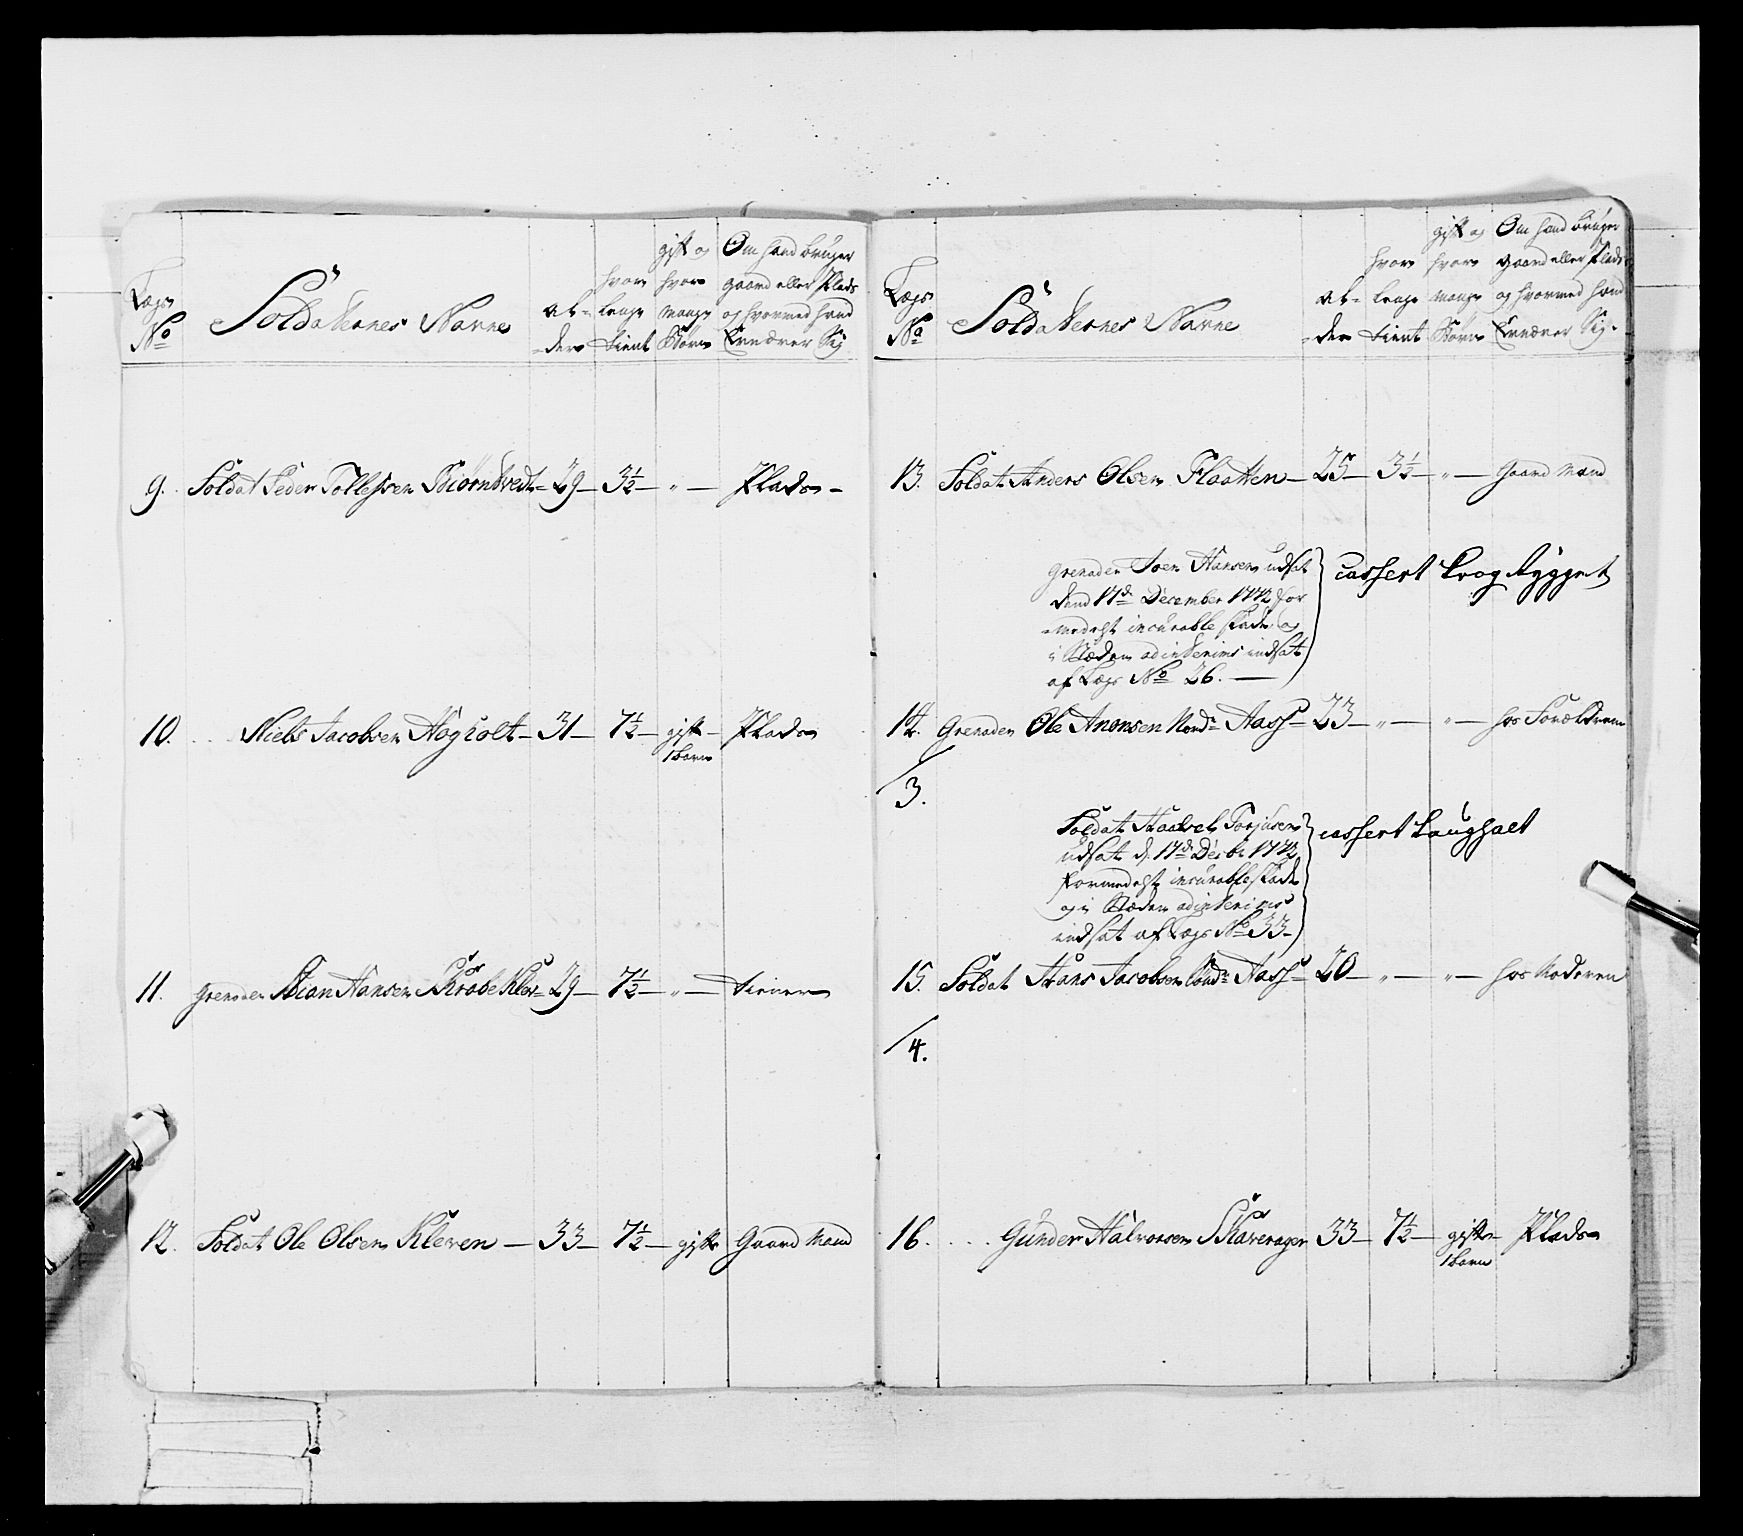 Lægs No
Soldaternes Navne
Al-der
hvor lenge tient
gift og hvor mange Børn
Om hand bruger gaard eller Plads og hvormed hand Ernærer Sig
9. Soldat Peder Tollefsen Biørntvedt – 29 – 3½ – " – Plads –
10. . . . Niels Jacobsen Hogholt – 31 – 7½ – gift – Plads
1 barn
11. Grenader Stian Hansen Schrobe Klev – 29 – 7½ – " – tiener
12. Soldat Ole Olsen Kleven – 33 – 7½ – gift Gaard Mand
Lægs No
Soldaternes Navne
Al-der
hvor lenge tient
gift og hvor mange Børn
Om hand bruger gaard eller Plads og hvormed hand Ernærer Sig.
13. Soldat Anders Olsen Flaatten – 25 – 3½ – " – Gaard Mand
Grenader Soen Hansen udsat
dend 17de December 1772 for
medelst incurable skade og
i Stæden adinterims indsat
af Lægs No 26. –
cassert Krog Rygget
14. Grenader Ole Anonsen Nordr Aass – 23 – " – " – hos Forældrene
/3.
Soldat Haavel Torjusen
udsat d. 17de Decbr 1772
formedelst incurable skade
og i Stæden adinterims
indsat af Lægs No 33 –
cassert Laughalt
15. Soldat Hans Jacobsen Søndr Aass – 20 – " – " – hos Moderen
/4.
16. . . . Gunder Halvorsen Skaverager 33 – 7½ – gift – Plads
1 barn